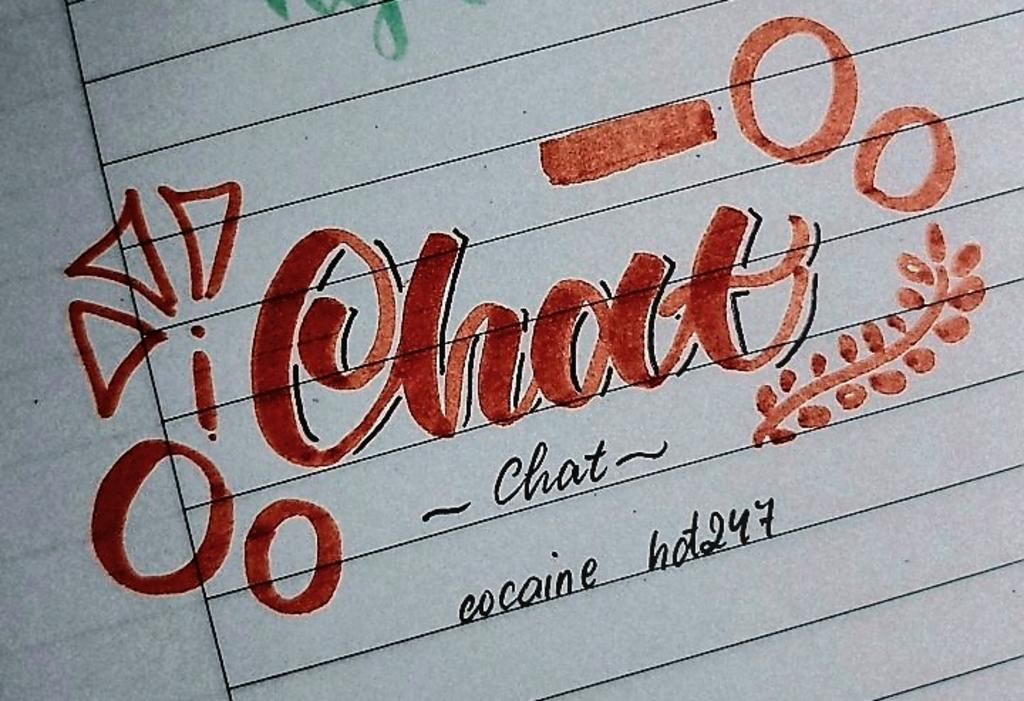 Chat
~ Chat ~
cocaine hot247